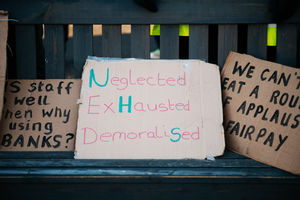 S STAFF
WELL
HEN WHY
USING
BANKS?
Neglected
ExHausted
DemoraliSed
WE CAN'T
EAT A ROU
OF APPLAUS
FAIR PAY